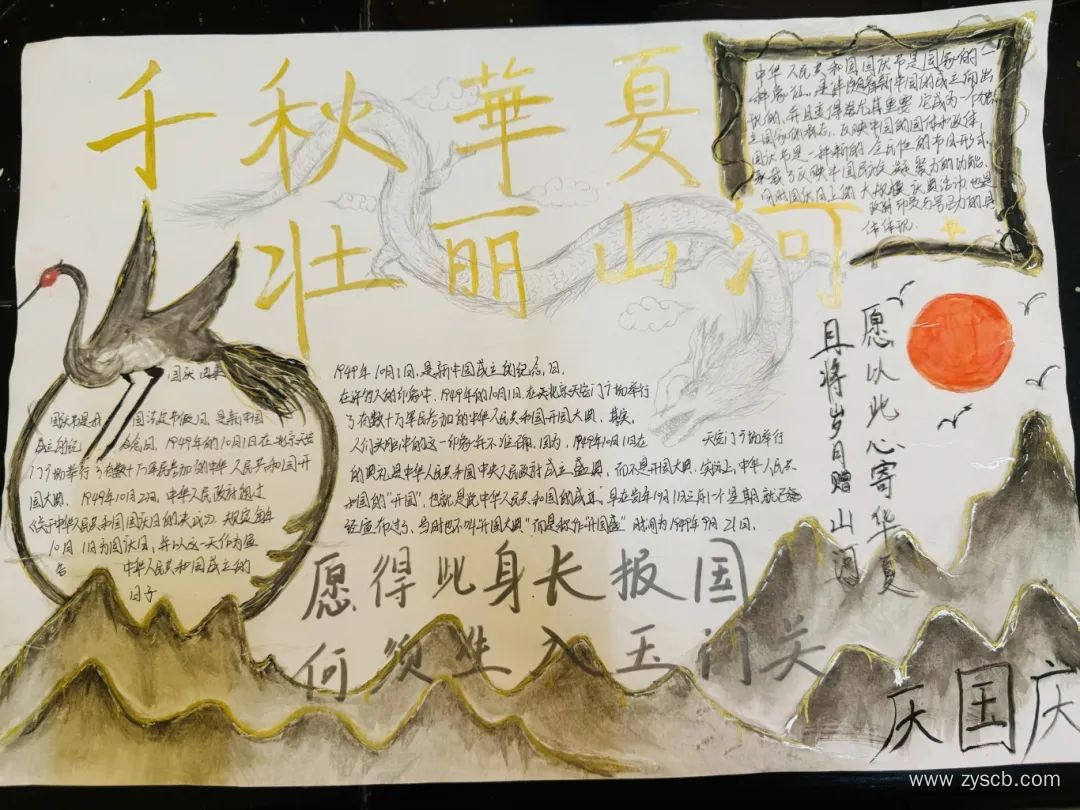 千秋華夏
壮丽山河
中华人民共和国国庆节是国家的一
种象征。是伴随着新中国的成立而出
现的，并且变得尤其重要。它成为一个独
立国家的标志，反映中国的国体和政体，
国庆节是一种新的、全民性的节日形式，
承载了反映中国民族凝聚力的功能、
同时国庆日上的大规模庆典活动也是
政府动员与号召力的具
体体现
愿以此心寄华夏
且将岁月赠山河
国庆由来
国庆节是
国法定节假日，是新中国
成立的纪
念日，1949年的10月1日在北京天安
门广场举行了有数十万军民参加的中华人民共和国开
国大典。1949年10月2日，中华人民政府通过
《关于中华人民共和国国庆日的决议》，规定每年
10月1日为国庆日，并以这一天作为宣
告
中华人民共和国成立的
日子
1949年10月1日，是新中国成立的纪念日。
在许多人的印象中，1949年的10月1日在北京天安门广场举行
了有数十万军民参加的中华人民共和国开国大典，其实，
人们头脑中的这一印象并不准确。因为，1949年10月1日在
天安门广场举行
的典礼是中华人民共和国中央人民政府成立盛典，而不是开国大典。实际上，中华人民共
和国的“开国”，也就是说中华人民共和国的成立，早在当年10月1日之前一个星期就已经
宣布过了，当时也不叫“开国大典”而是称作“开国盛”时间为1949年9月21日。
愿得此身长报国
何须生入玉门关
庆国庆
www.zyscb.com